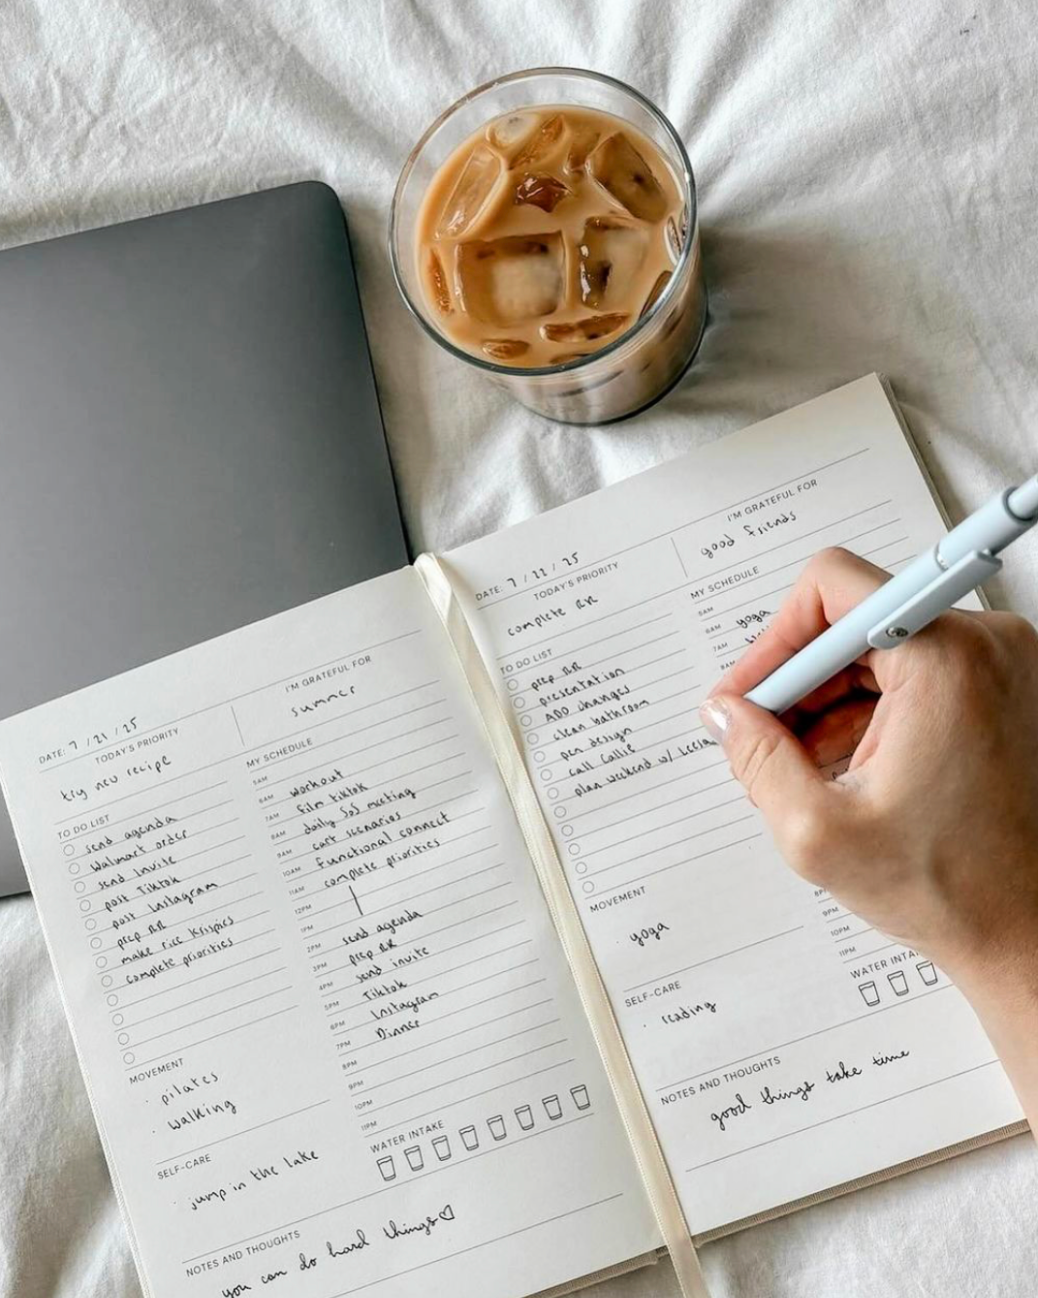 DATE: 7 / 21 / 25
TODAY'S PRIORITY
try new recipe
I'M GRATEFUL FOR
summer
TO DO LIST
send agenda
Walmart order
send invite
post Tiktok
post Instagram
prep RR
make rice krispies
complete priorities
MY SCHEDULE
5AM
6AM workout
7AM film tiktok
8AM daily SoS meeting
9AM cart scenarios
10AM functional connect
11AM complete priorities
12PM
1PM
2PM send agenda
3PM prep RR
4PM send invite
5PM Tiktok
6PM Instagram
7PM Dinner
8PM
9PM
10PM
11PM
MOVEMENT
· pilates
· walking
SELF-CARE
· jump in the lake
WATER INTAKE
NOTES AND THOUGHTS
you can do hard things♡
DATE: 7 / 22 / 25
TODAY'S PRIORITY
complete RR
I'M GRATEFUL FOR
good friends
TO DO LIST
prep RR
presentation
ADO changes
clean bathroom
pen design
call Callie
plan weekend w/
MY SCHEDULE
5AM
6AM yoga
7AM
8AM
9PM
10PM
11PM
MOVEMENT
· yoga
SELF-CARE
· reading
WATER INTAKE
NOTES AND THOUGHTS
good things take time